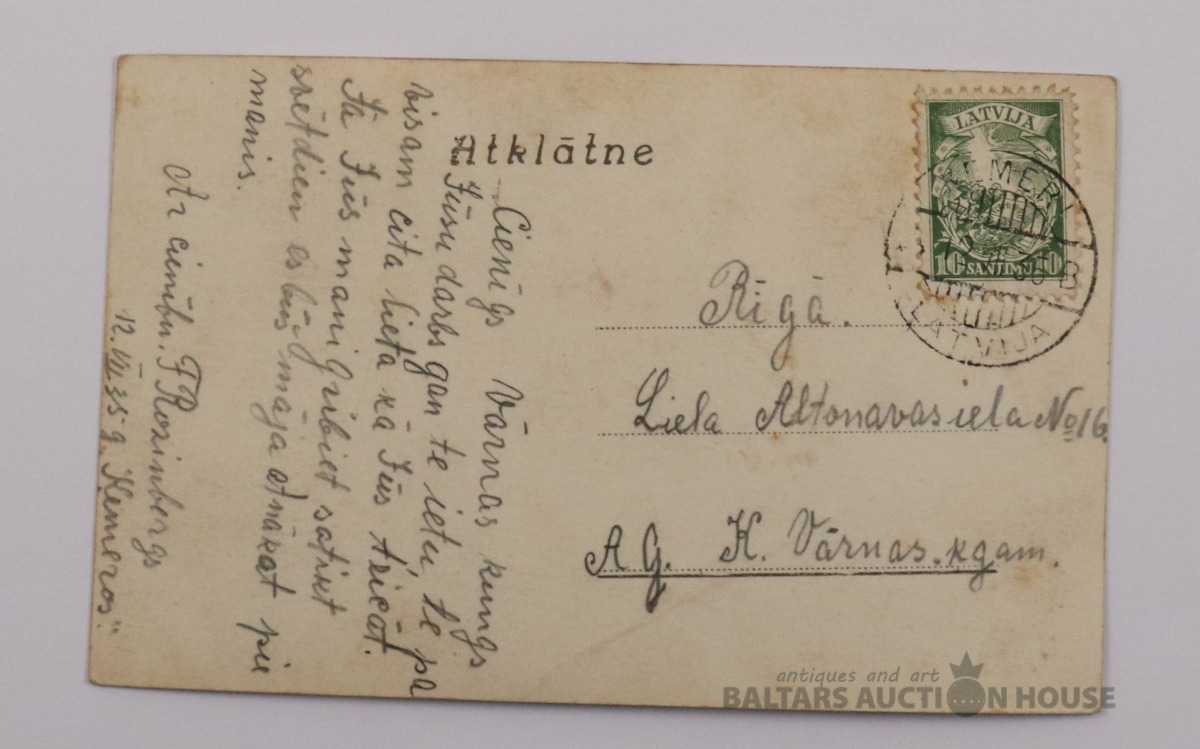 Atklātne
Cienīgs Vārnas kungs
Jūsu darbs gan te ietu, te pa
visam cita lieta kā Jūs teicāt.
Ja Jūs mani gribiet satikt
svētdien es būs māja atnākat pie
manis.
Ar cienību. F Rozinbergs
12. VI 35 g. Ķemeros."
LATVIJA
10 SANTIMU 10
ĶEMERI
35 B
LATVIJA
Rīgā.
Liela Altonavas iela No 16.
A G. K. Vārnas. kgam.
antiques and art
BALTARS AUCTION HOUSE